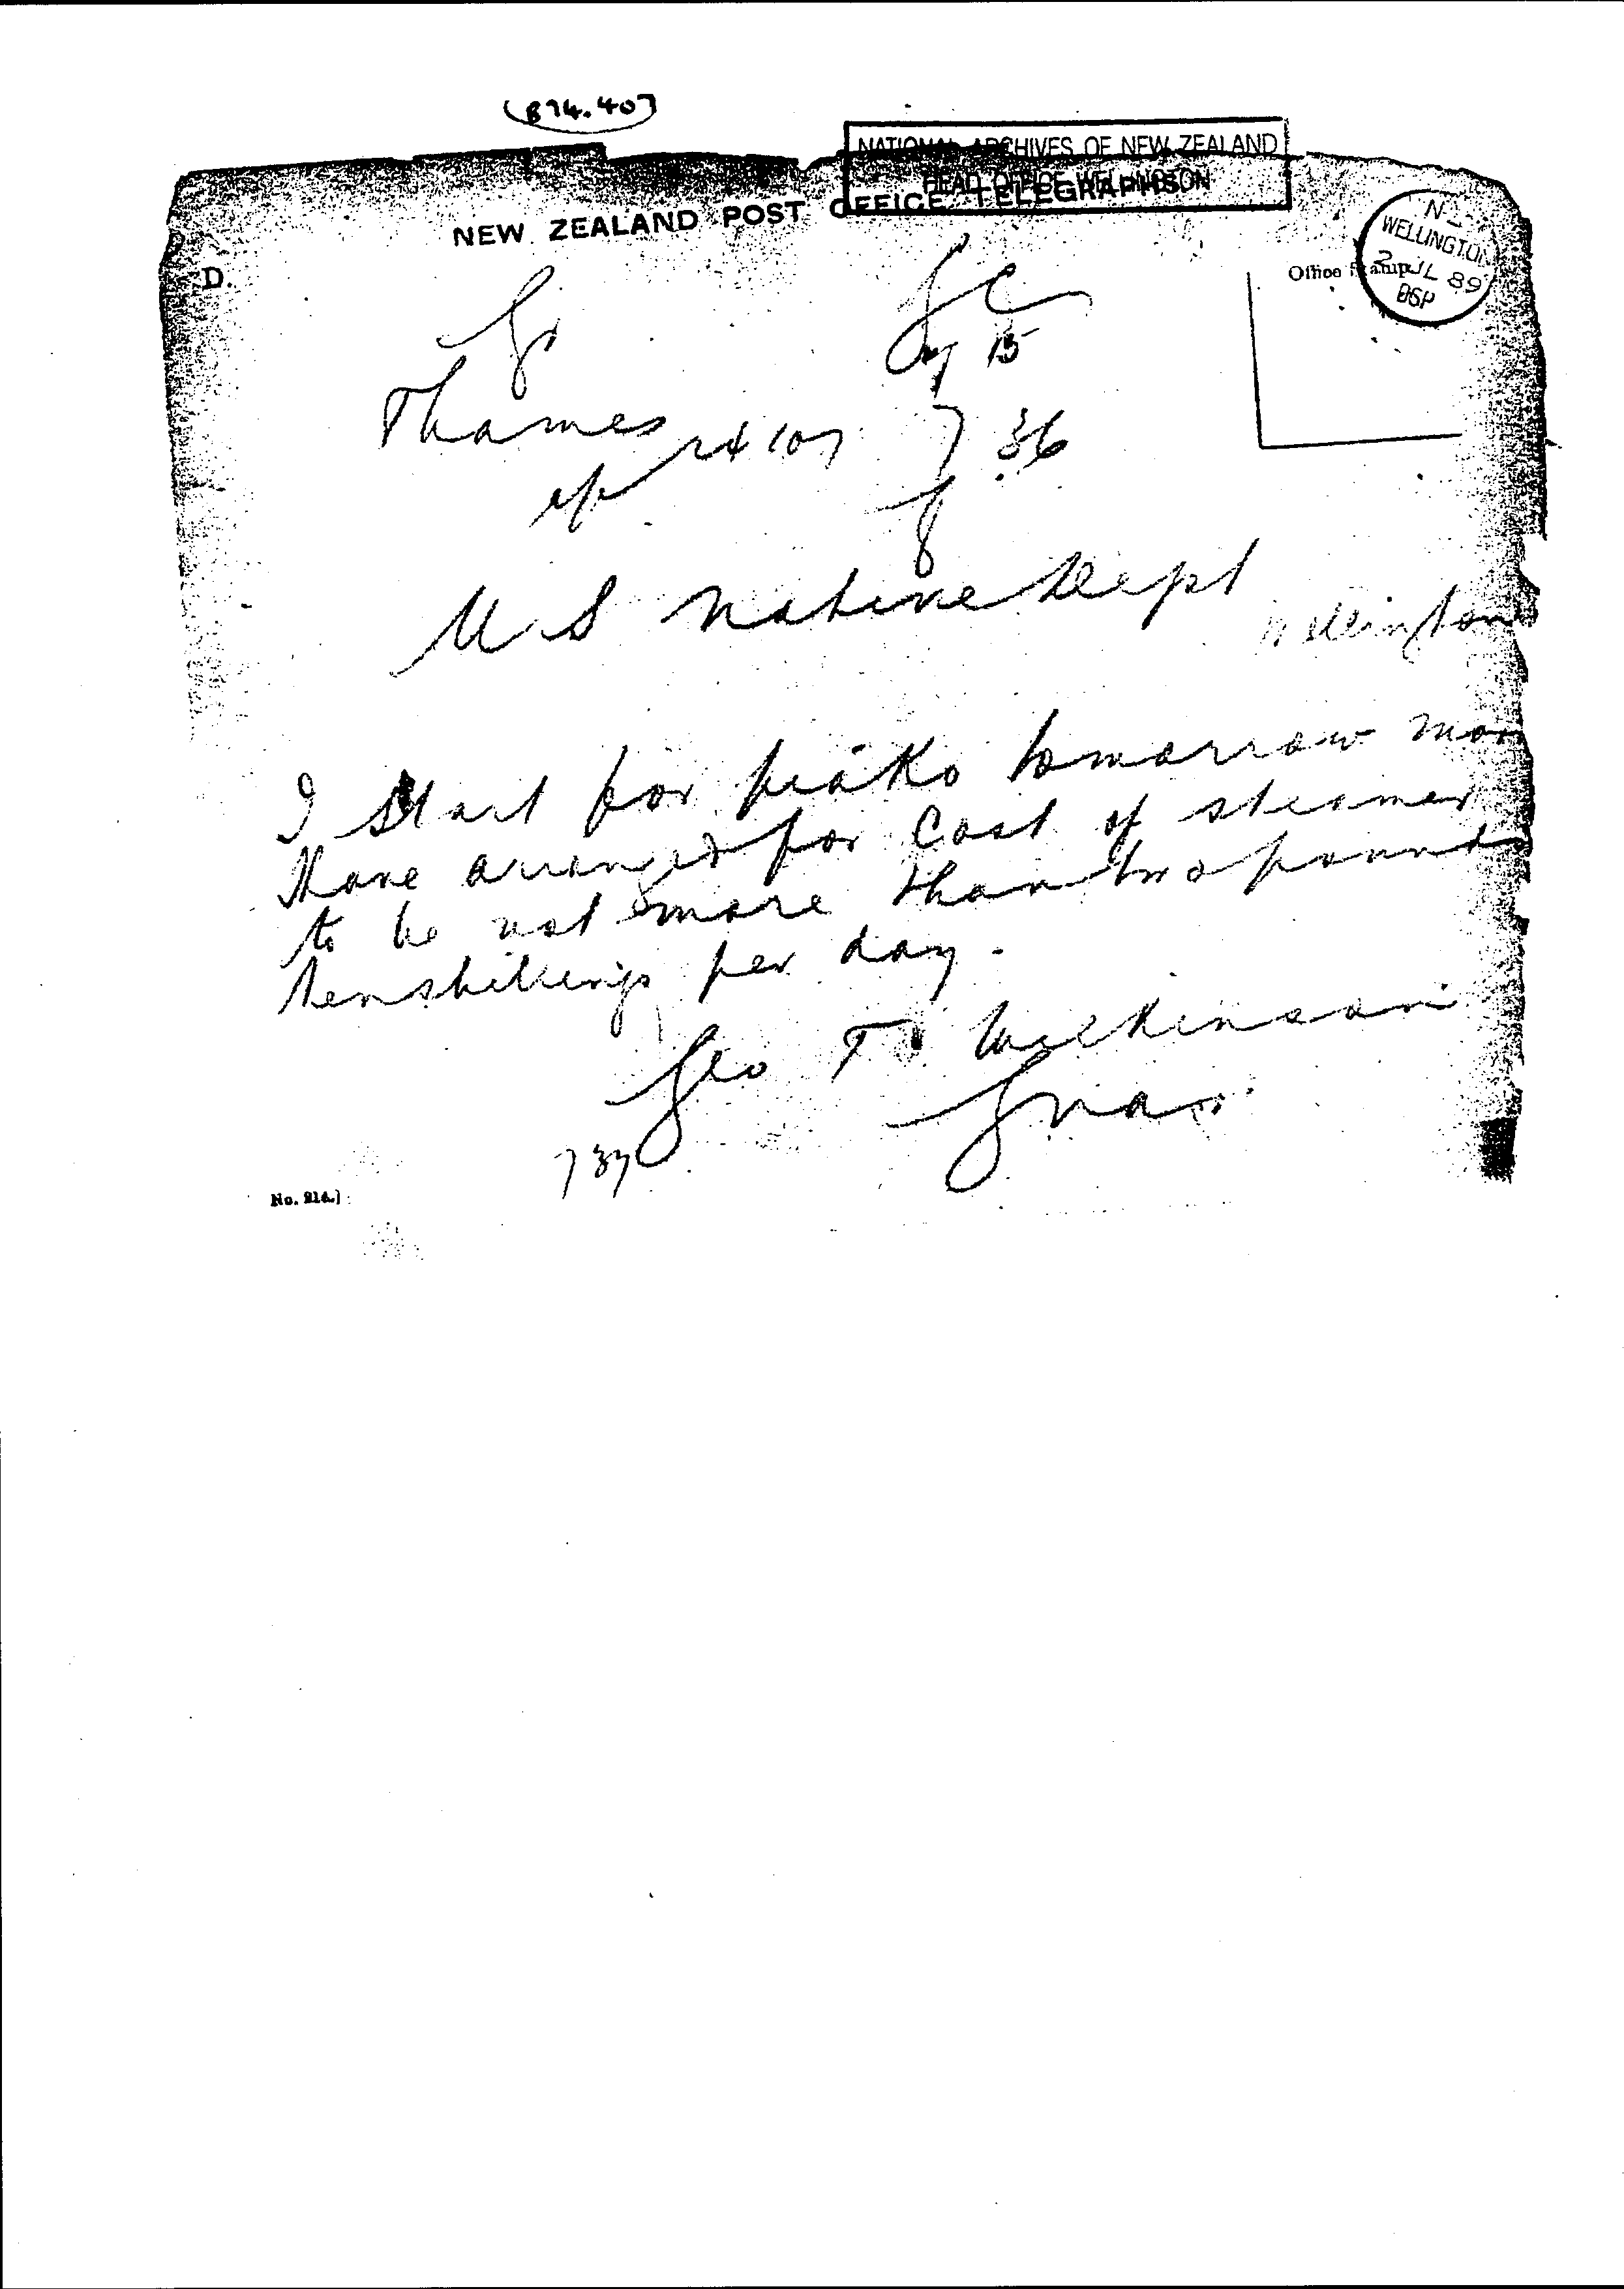 (874.40)
NATIONAL ARCHIVES OF NEW ZEALAND
HEAD OFFICE WELLINGTON
NEW ZEALAND POST OFFICE TELEGRAPHS
D.
Office Stamp
WELLINGTON
2 JL 89
15
Thames
36
U S Native Dept
Wellington
I start for piako tomorrow morn
Have arranged for cost of steamer
to be not more than two pounds
ten shillings per day.
Geo T Wilkinson
737
No. 214.)